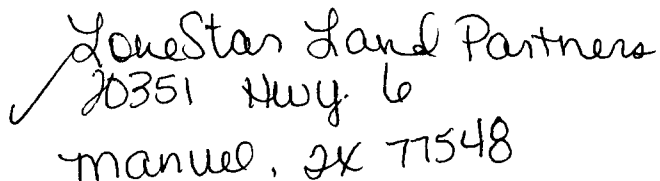 LoneStar Land Partners
20351 Hwy. 6
Manuel, TX 77548